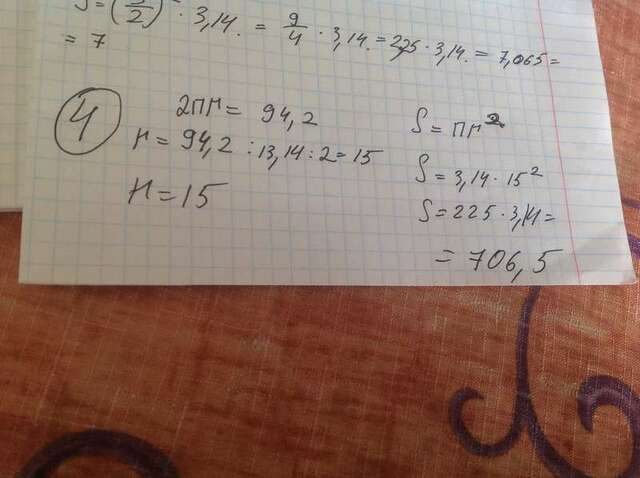 S = (3/2)² · 3,14. = 9/4 · 3,14. = 2,25 · 3,14. = 7,065 =
= 7
4
2ПН = 94,2
Н = 94,2 : 13,14 : 2 = 15
Н = 15
S = ПН²
S = 3,14 · 15²
S = 225 · 3,14 =
= 706,5